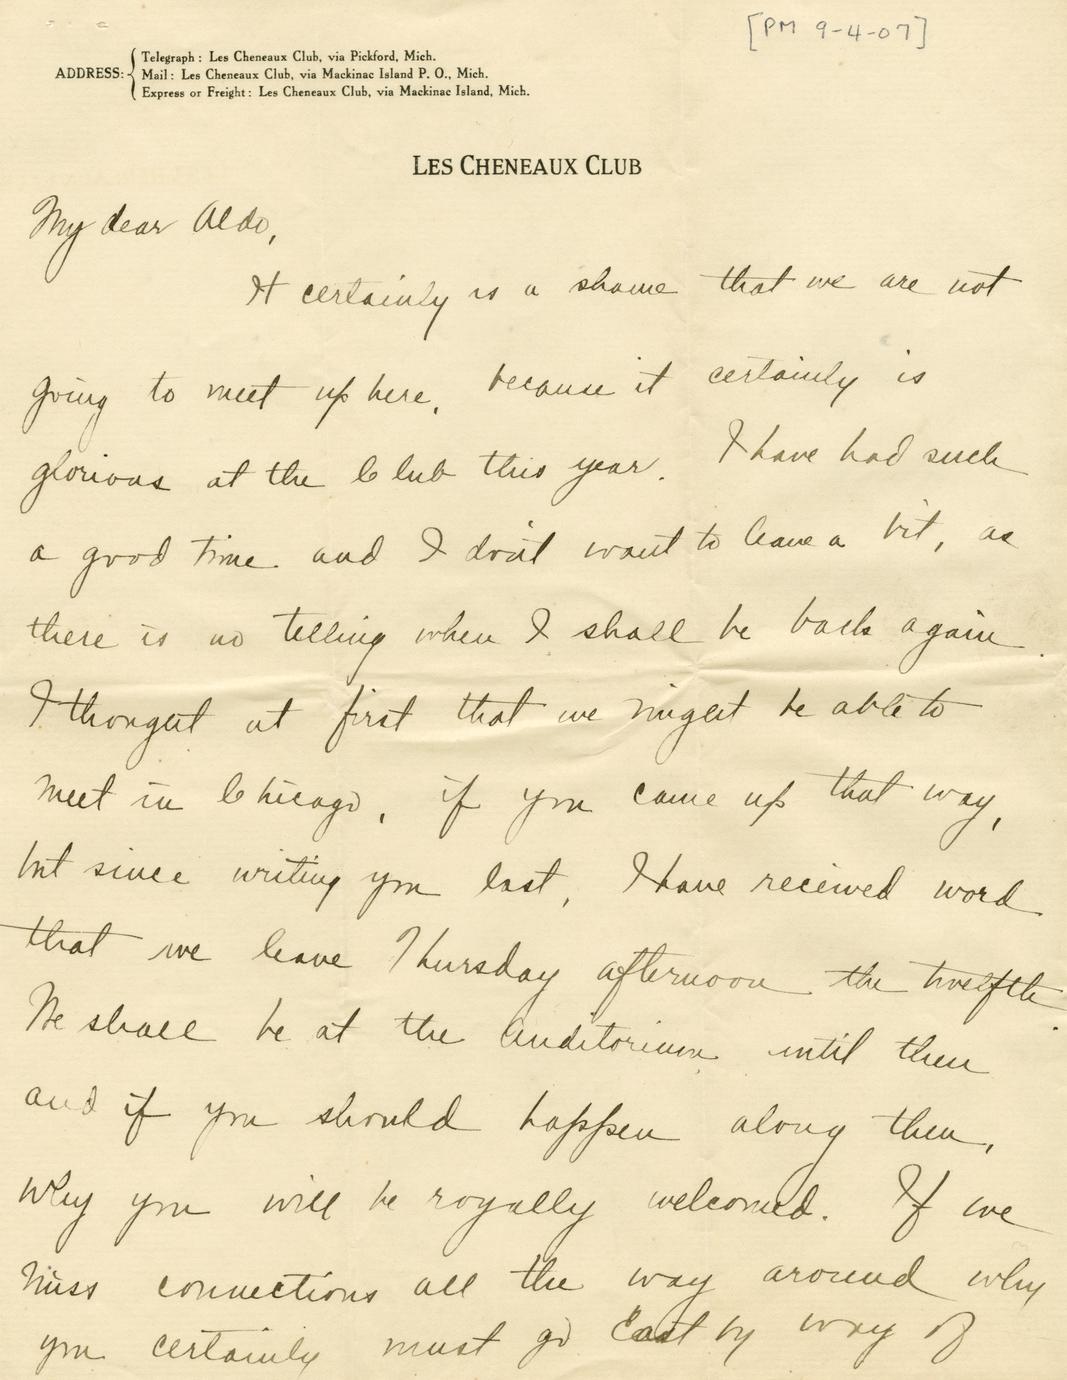 [PM 9-4-07]
ADDRESS:
Telegraph: Les Cheneaux Club, via Pickford, Mich.
Mail: Les Cheneaux Club, via Mackinac Island P. O., Mich.
Express or Freight: Les Cheneaux Club, via Mackinac Island, Mich.
LES CHENEAUX CLUB
My dear Aldo,
It certainly is a shame that we are not
going to meet up here, because it certainly is
glorious at the Club this year. I have had such
a good time and I don't want to leave a bit, as
there is no telling when I shall be back again.
I thought at first that we might be able to
meet in Chicago, if you came up that way,
but since writing you last, I have received word
that we leave Thursday afternoon the twelfth.
We shall be at the Auditorium until then
and if you should happen along then,
why you will be royally welcomed. If we
miss connections all the way around why
you certainly must go East by way of